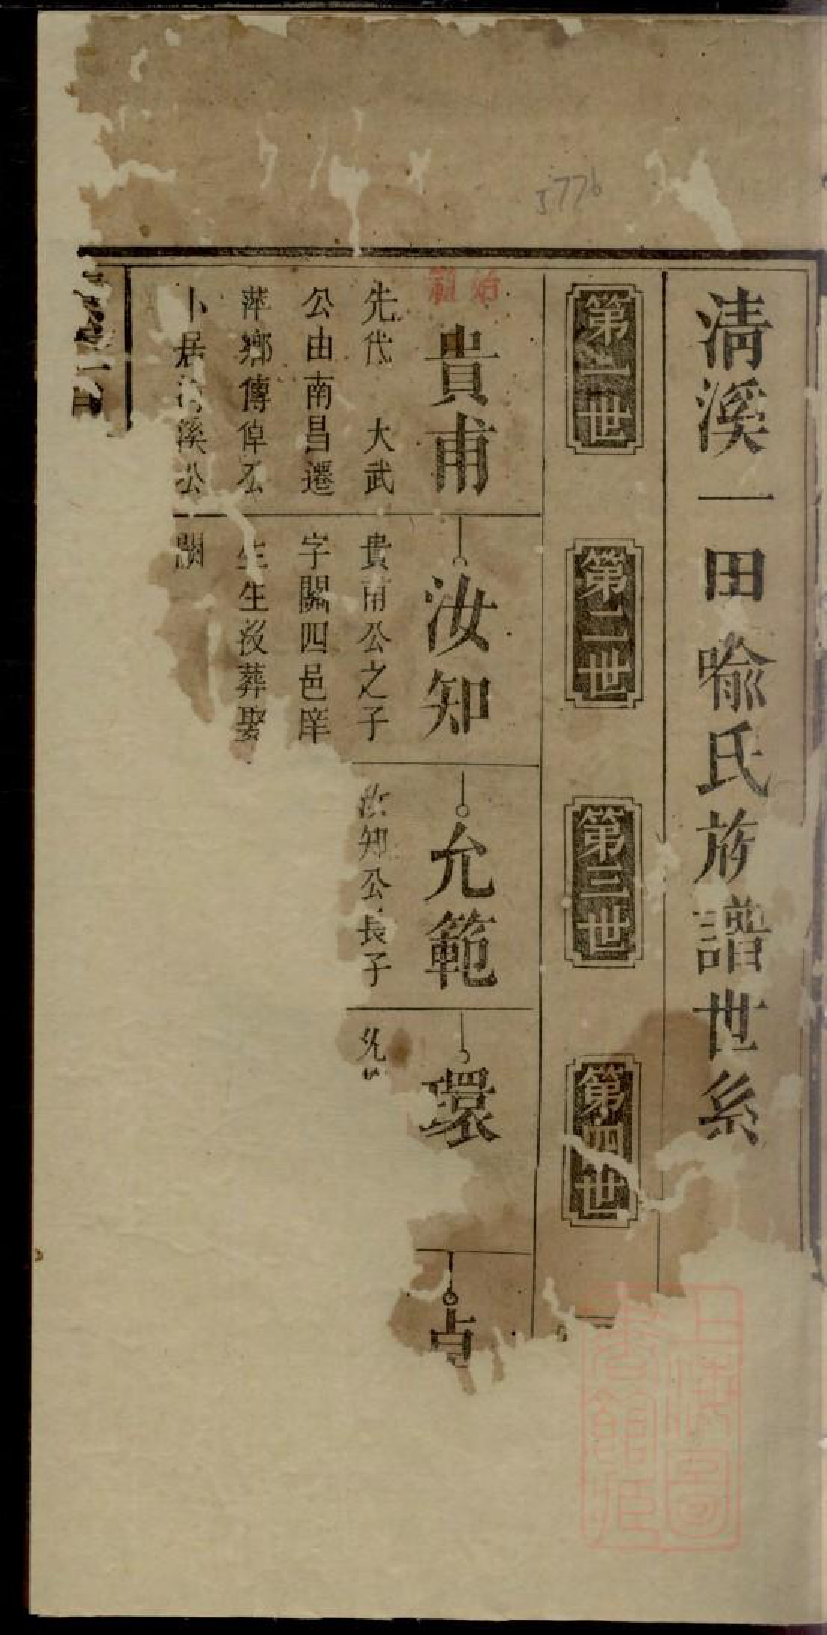 清溪一田喻氏族譜世系
第一世
第二世
第三世
第四世
始祖
貴甫
先代 大武
公由南昌遷
萍鄉傳倬公
卜居清溪公
汝知
貴甫公之子
字闕四邑庠
生生沒葬娶
闕
允範
汝知公長子
環
允
5776
上海圖書館藏